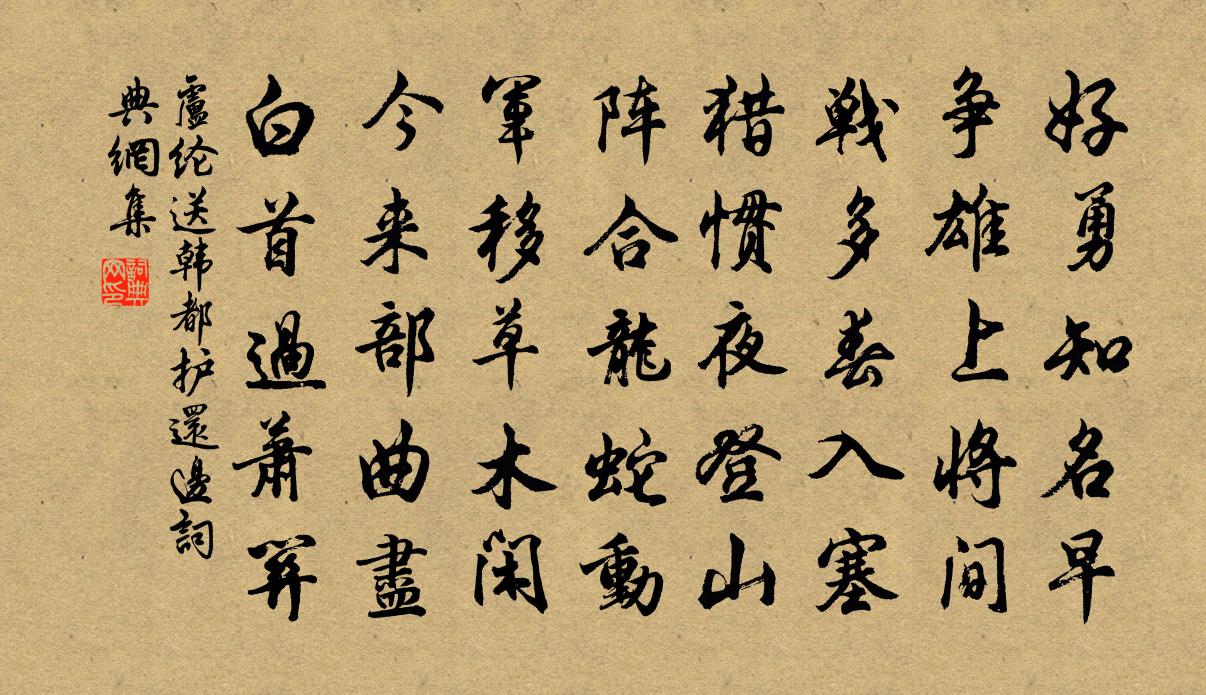 好勇知名早
争雄上將间
戦多春入塞
猎惯夜登山
阵合龍蛇動
軍移草木闲
今来部曲盡
白首過蕭関
盧纶送韩都护還邊詞
典網集
詞典网印